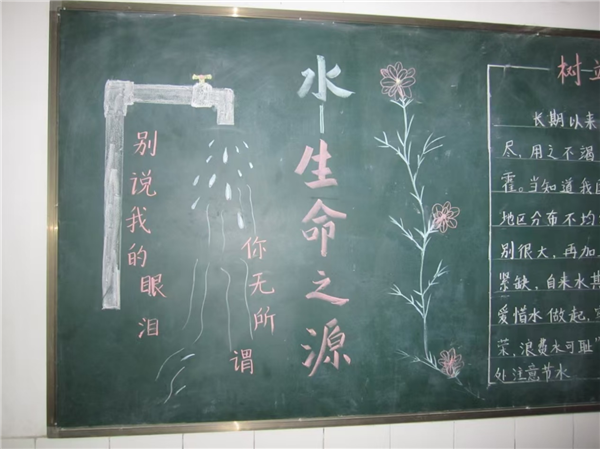 别说我的眼泪
你无所谓
水—生命之源
树立
长期以来
尽，用之不竭
霍。当知道我国
地区分布不均
别很大，再加
紧缺，自来水其
爱惜水做起，
荣，浪费水可耻"
处注意节水